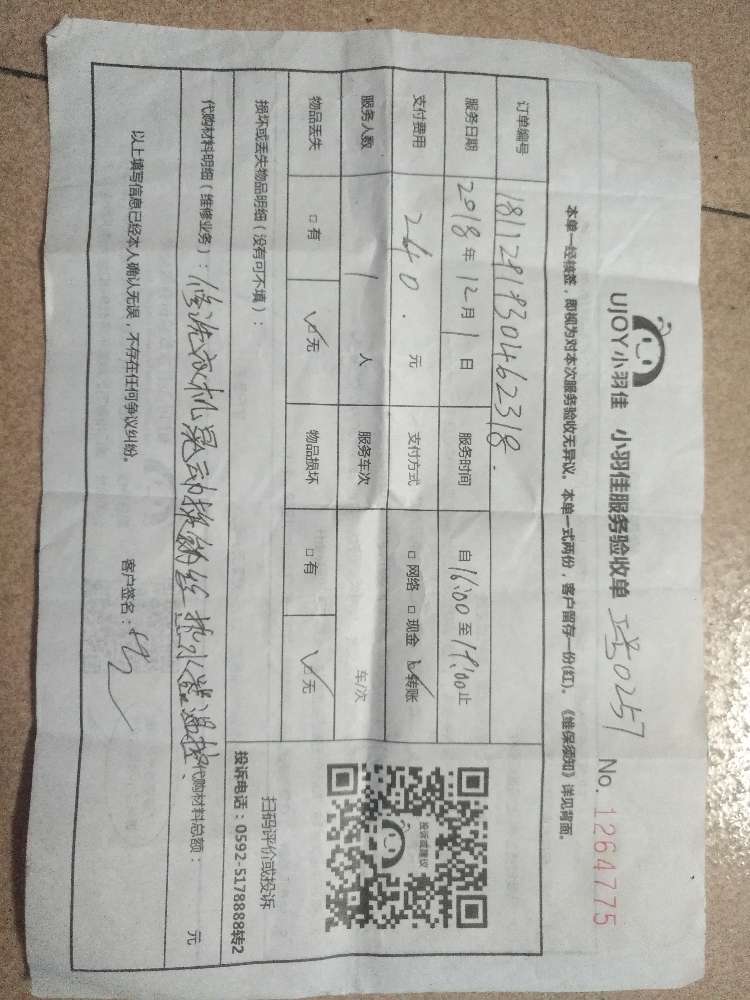 UJOY小羽佳 小羽佳服务验收单 工号0257 No. 1264775
本单一经核签，即视为对本次服务验收无异议。本单一式两份，客户留存一份(红)。《维保须知》详见背面。
订单编号 1811291830462318.
服务日期 2018年12月1日 服务时间 自16:00至17:00止
支付费用 240.元 支付方式 □网络 □现金 ☑转账
服务人数 1人 服务车次 车/次
物品丢失 □有 ☑无 物品损坏 □有 ☑无
损坏或丢失物品明细（没有可不填）：
代购材料明细（维修业务）：修洗衣机晃动换 热水器温控. 代购材料总额： 元
以上填写信息已经本人确认无误，不存在任何争议纠纷。 客户签名：
投诉或建议
扫码评价或投诉
投诉电话：0592-5178888转2